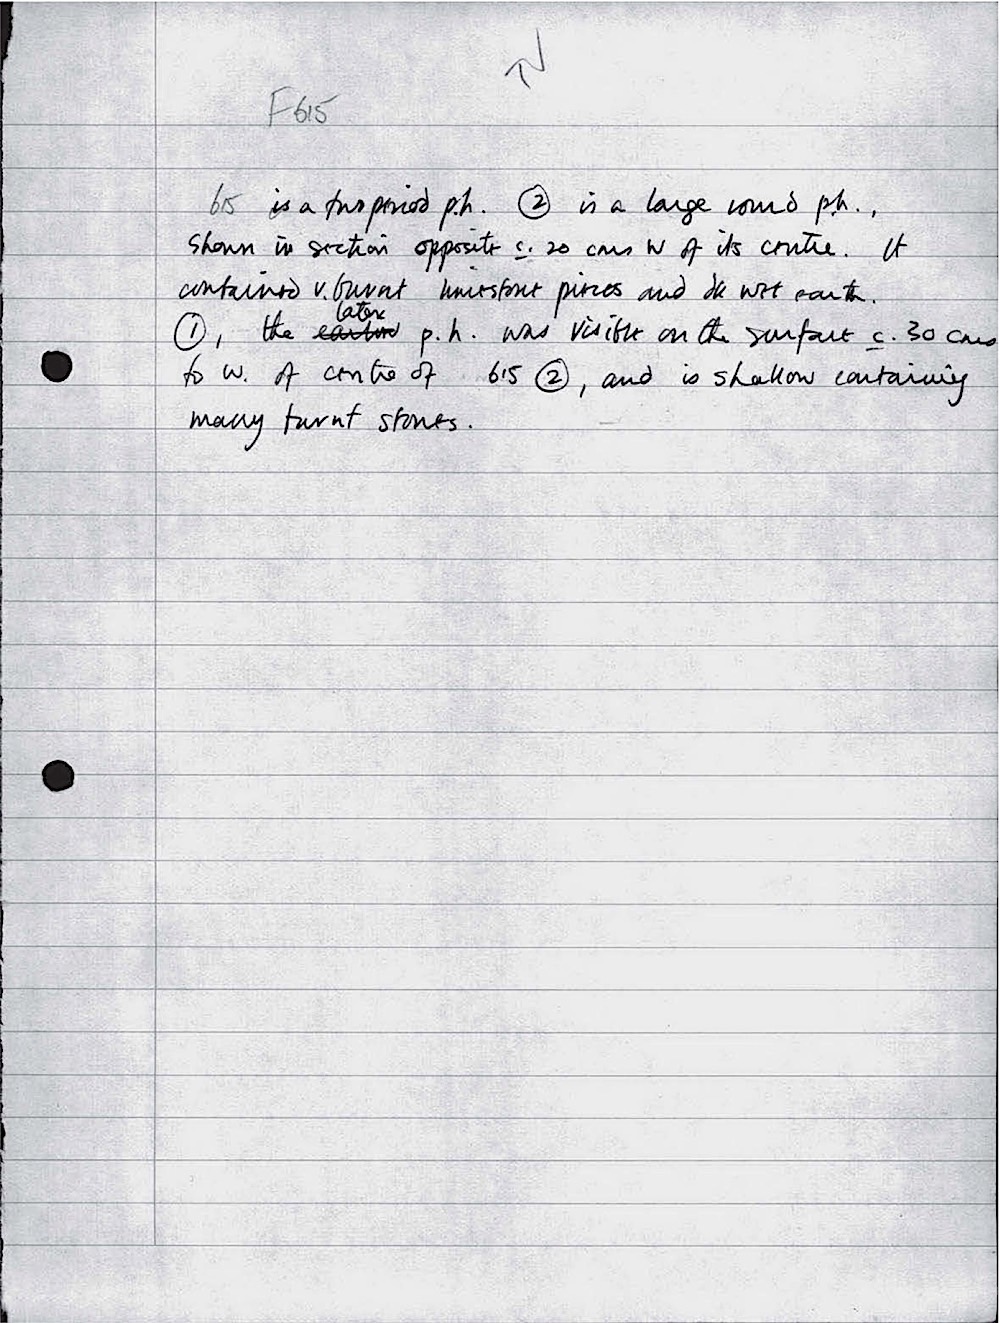 F615
615 is a two period p.h. ② is a large round p.h.,
shown in section opposite c. 20 cms W of its centre. It
contained v. burnt limestone pieces and dk wet earth.
later
①, the earlier p.h. was visible on the surface c. 30 cms
to W. of centre of 615 ②, and is shallow containing
many burnt stones.